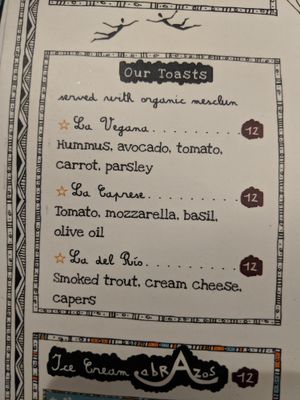 Our Toasts
served with organic mesclun
La Vegana......... 12
Hummus, avocado, tomato,
carrot, parsley
La Caprese.......... 12
Tomato, mozzarella, basil,
olive oil
La del Río.......... 12
Smoked trout, cream cheese,
capers
Ice Cream abrAzos 12